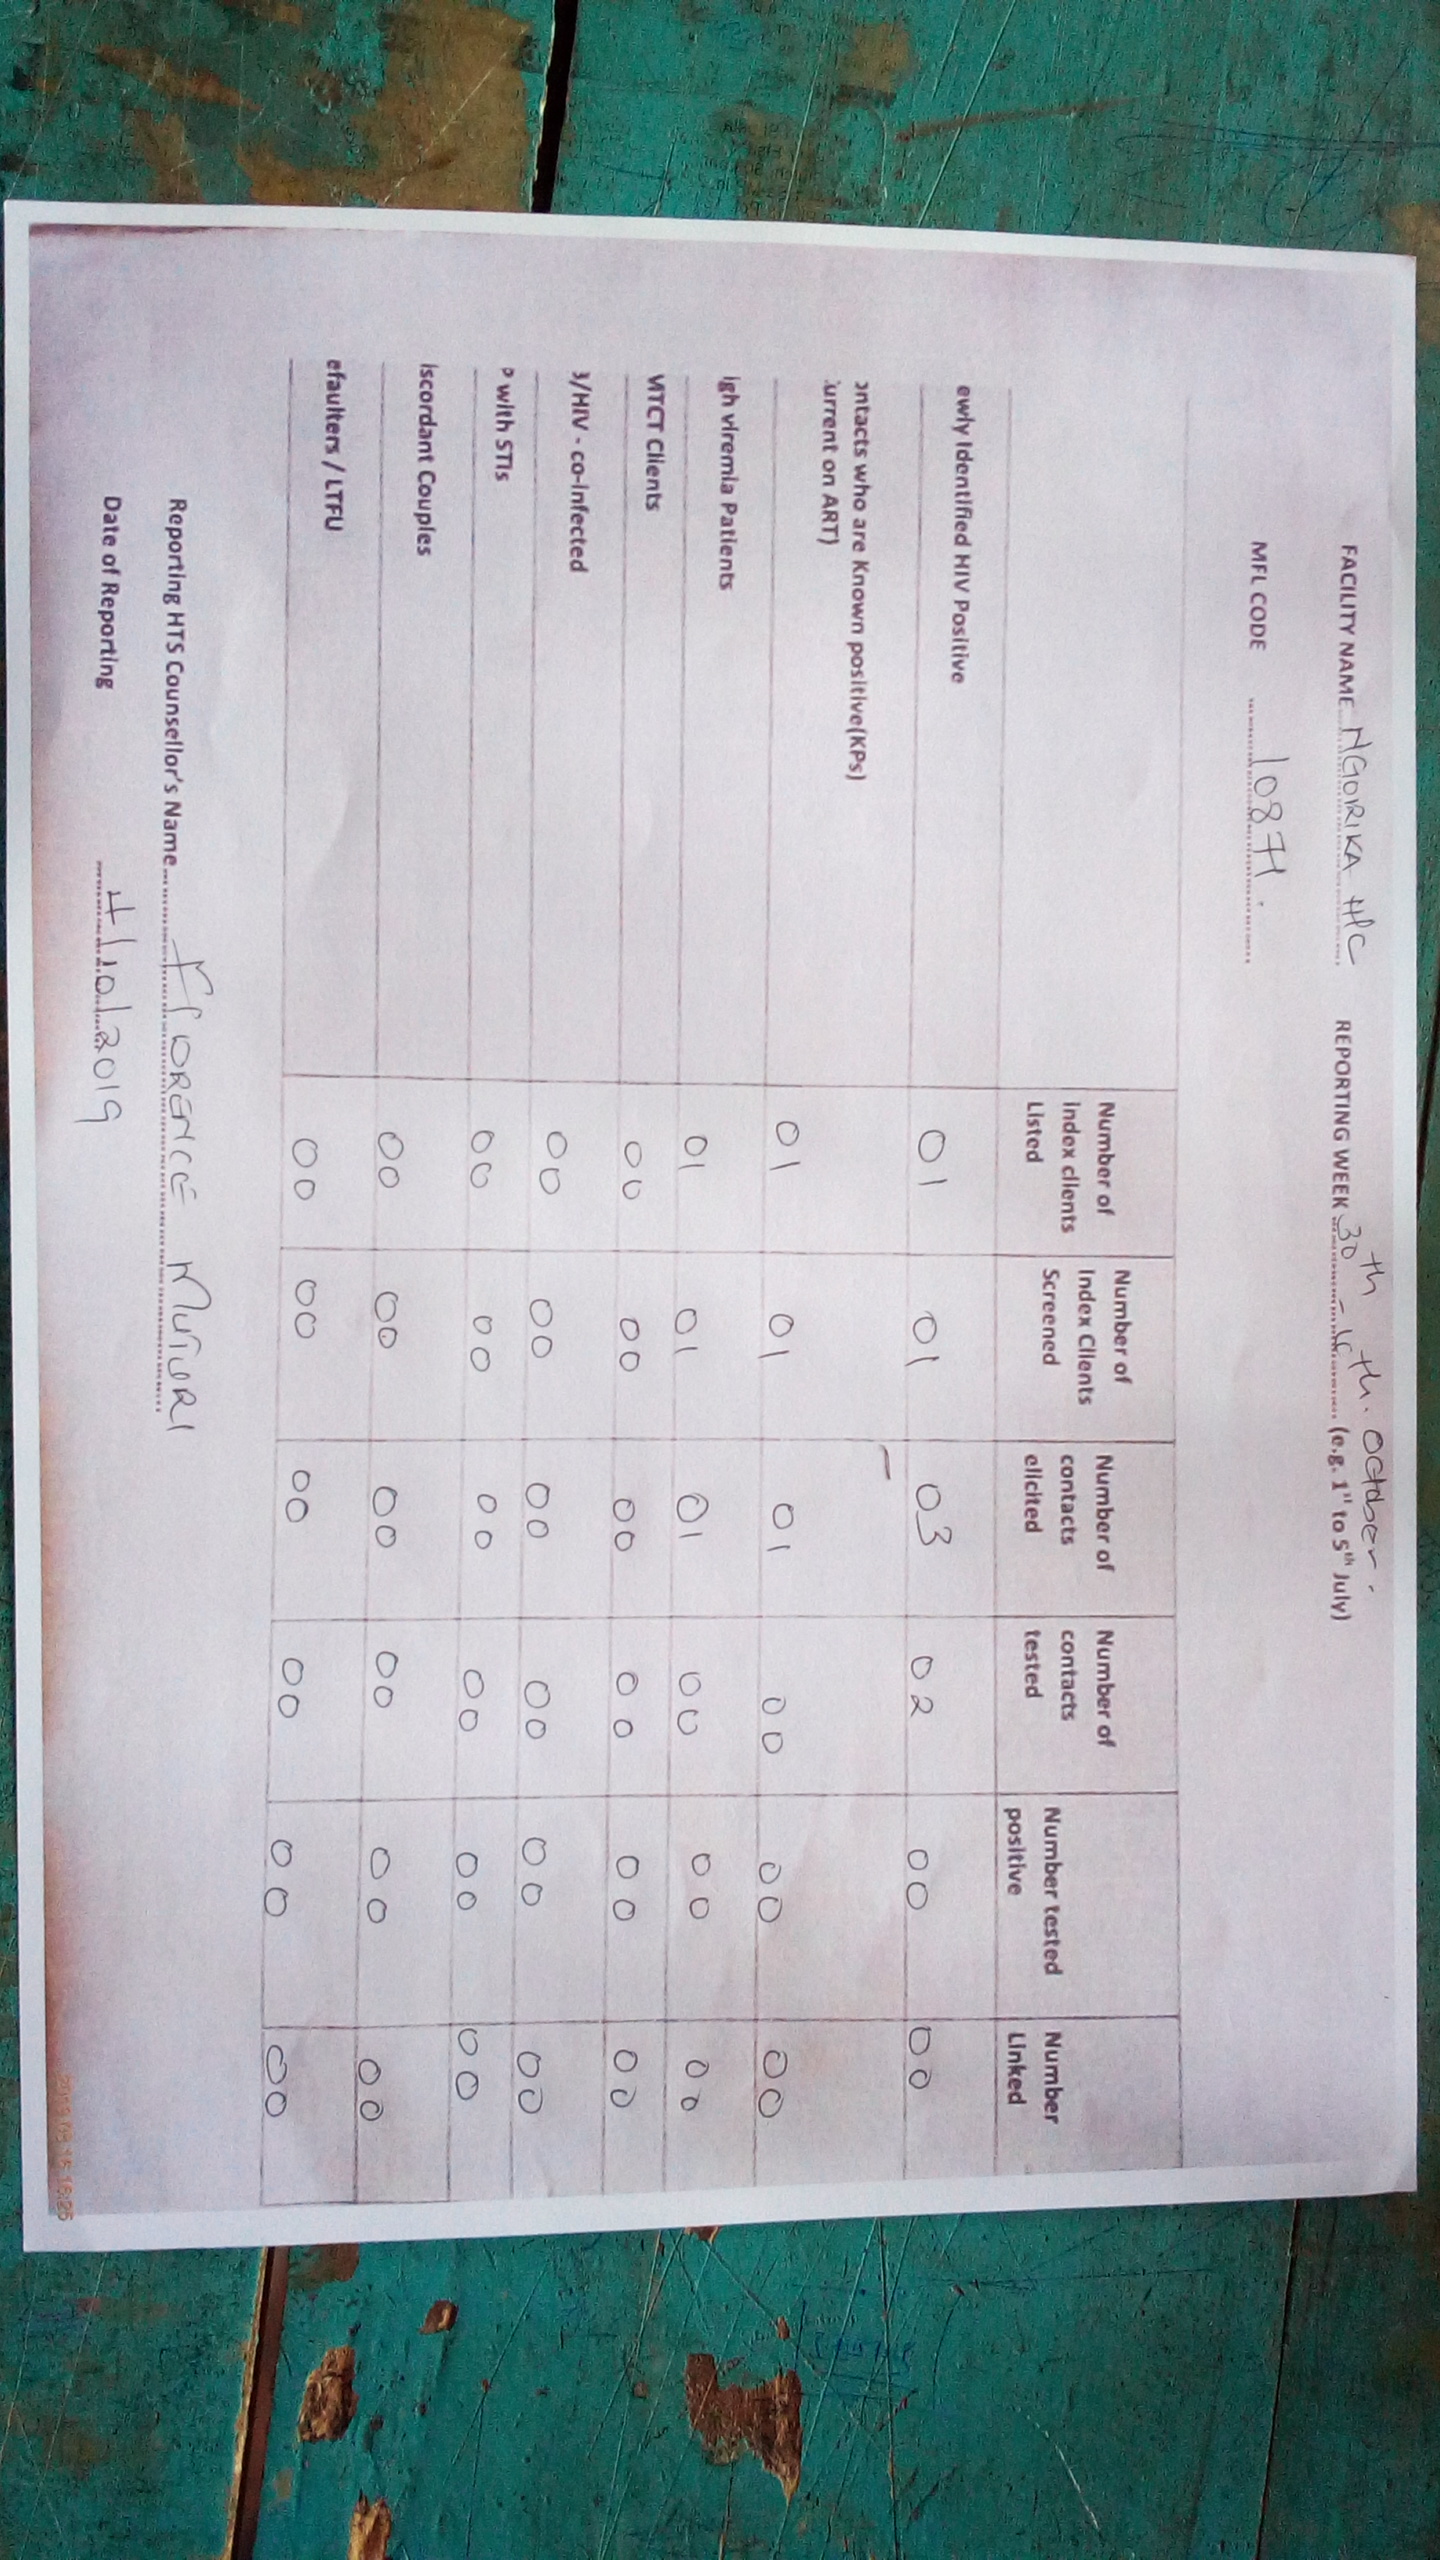 FACILITY NAME NGORIKA H/C REPORTING WEEK 30th - 4th. October. (e.g. 1st to 5th July)
MFL CODE 10871.
Number of Index clients Listed Number of Index Clients Screened Number of contacts elicited Number of contacts tested Number tested positive Number Linked
ewly Identified HIV Positive 01 01 03 02 00 00
ontacts who are Known positive(KPs)
urrent on ART) 01 01 01 00 00 00
igh viremia Patients 01 01 01 00 00 00
MTCT Clients 00 00 00 00 00 00
B/HIV - co-infected 00 00 00 00 00 00
P with STIs 00 00 00 00 00 00
iscordant Couples 00 00 00 00 00 00
efaulters / LTFU 00 00 00 00 00 00
Reporting HTS Counsellor's Name Florence Muturi
Date of Reporting 4/10/2019